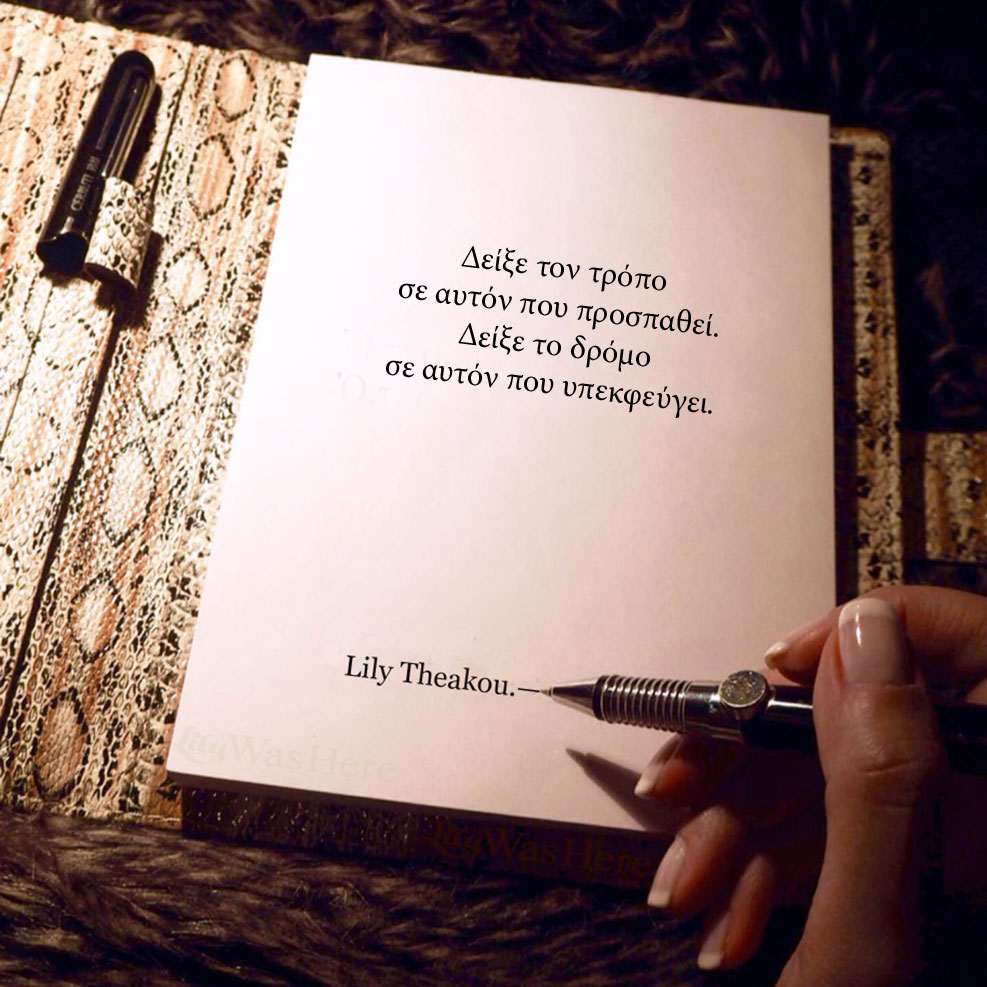 Δείξε τον τρόπο
σε αυτόν που προσπαθεί.
Δείξε το δρόμο
σε αυτόν που υπεκφεύγει.
Lily Theakou.—
LilyWasHere
LilyWasHere